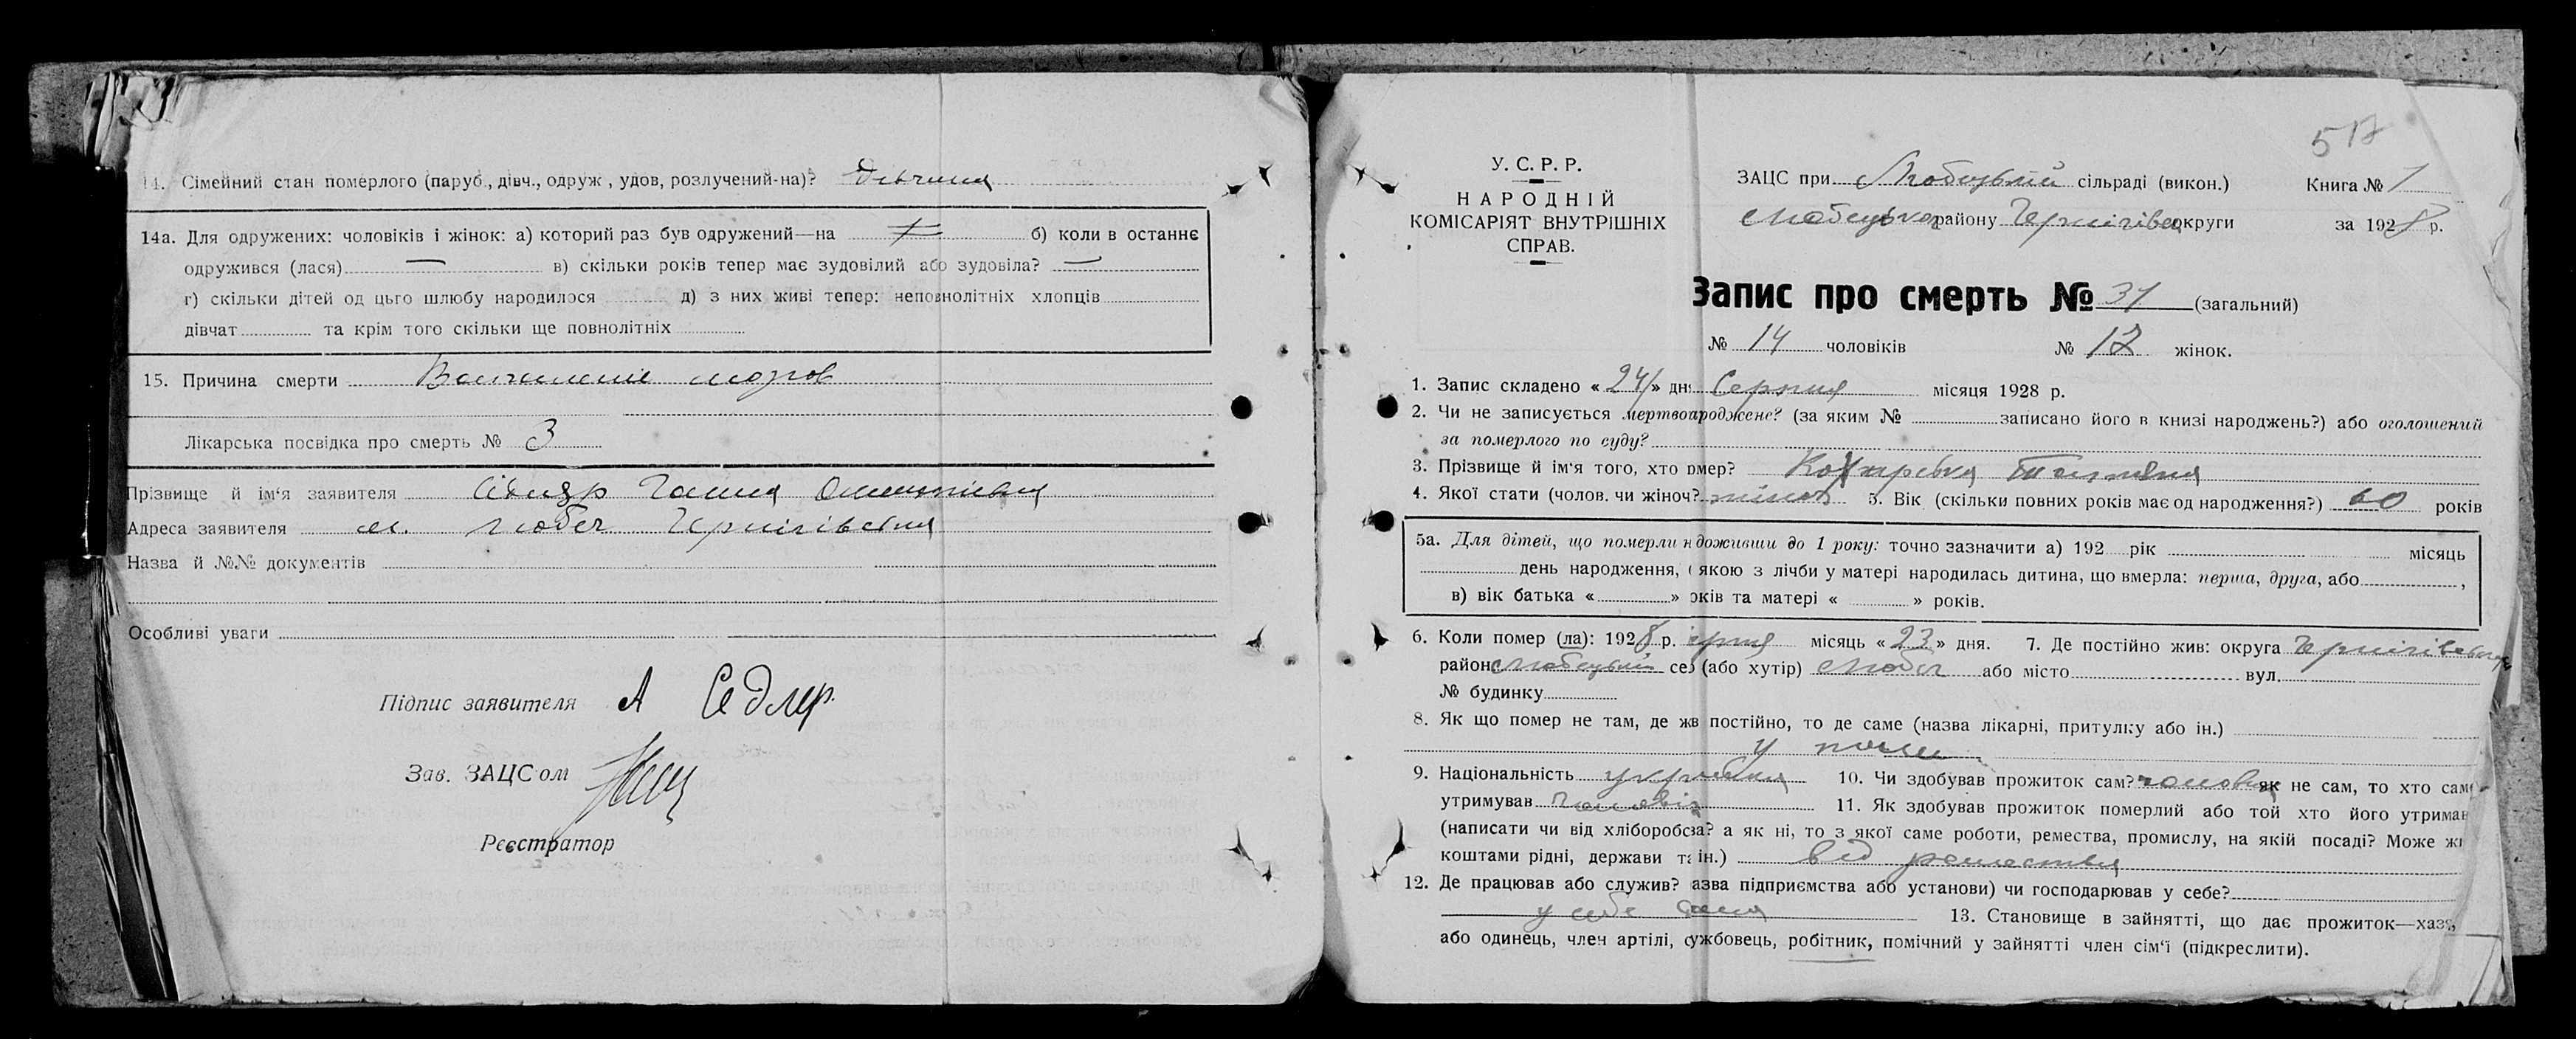 14. Сімейний стан померлого (паруб., дівч., одруж., удов, розлучений-на)? Дівчина
14а. Для одружених: чоловіків і жінок: а) которий раз був одружений—на б) коли в останнє
одружився (лася) — в) скільки років тепер має зудовілий або зудовіла? —
г) скільки дітей од цього шлюбу народилося д) з них живі тепер: неповнолітніх хлопців
дівчат та крім того скільки ще повнолітніх
15. Причина смерти
Лікарська посвідка про смерть № 3
Прізвище й ім'я заявителя Ганна
Адреса заявителя м. Любеч Чернігівська
Назва й №№ документів
Особливі уваги
Підпис заявителя А Седлер.
Зав. ЗАЦС'ом
Реєстратор
517
У. С. Р. Р.
НАРОДНІЙ
КОМІСАРІЯТ ВНУТРІШНІХ
СПРАВ.
ЗАЦС при Любецькій сільраді (викон.) Книга № 1
Любецького району Чернігівсь округи за 1928 р.
Запис про смерть № 31 (загальний)
№ 14 чоловіків № 17 жінок.
1. Запис складено «24» дня Серпня місяця 1928 р.
2. Чи не записується мертвонароджене? (за яким № записано його в книзі народжень?) або оголошений
за померлого по суду?
3. Прізвище й ім'я того, хто вмер? Тетяна
4. Якої стати (чолов. чи жіноч? жіноч 5. Вік (скільки повних років має од народження?) 60 років
5а. Для дітей, що померли не доживши до 1 року: точно зазначити а) 192 рік місяць
день народження, якою з лічби у матері народилась дитина, що вмерла: перша, друга, або ,
в) вік батька « » років та матері « » років.
6. Коли помер (ла): 1928 р. серпня місяць «23» дня. 7. Де постійно жив: округа Чернігівська
район Любецький село (або хутір) Любеч або місто вул.
№ будинку
8. Як що помер не там, де жив постійно, то де саме (назва лікарні, притулку або ін.)
9. Національність українка 10. Чи здобував прожиток сам? чоловік як не сам, то хто саме
утримував чоловік 11. Як здобував прожиток померлий або той хто його утримав
(написати чи від хліборобства? а як ні, то з якої саме роботи, ремества, промислу, на якій посаді? Може жи
коштами рідні, держави та ін.) від ремества
12. Де працював або служив? назва підприємства або установи) чи господарював у себе?
у себе дома 13. Становище в зайнятті, що дає прожиток—хазя
або одинець, член артілі, службовець, робітник, помічний у зайнятті член сім'ї (підкреслити).